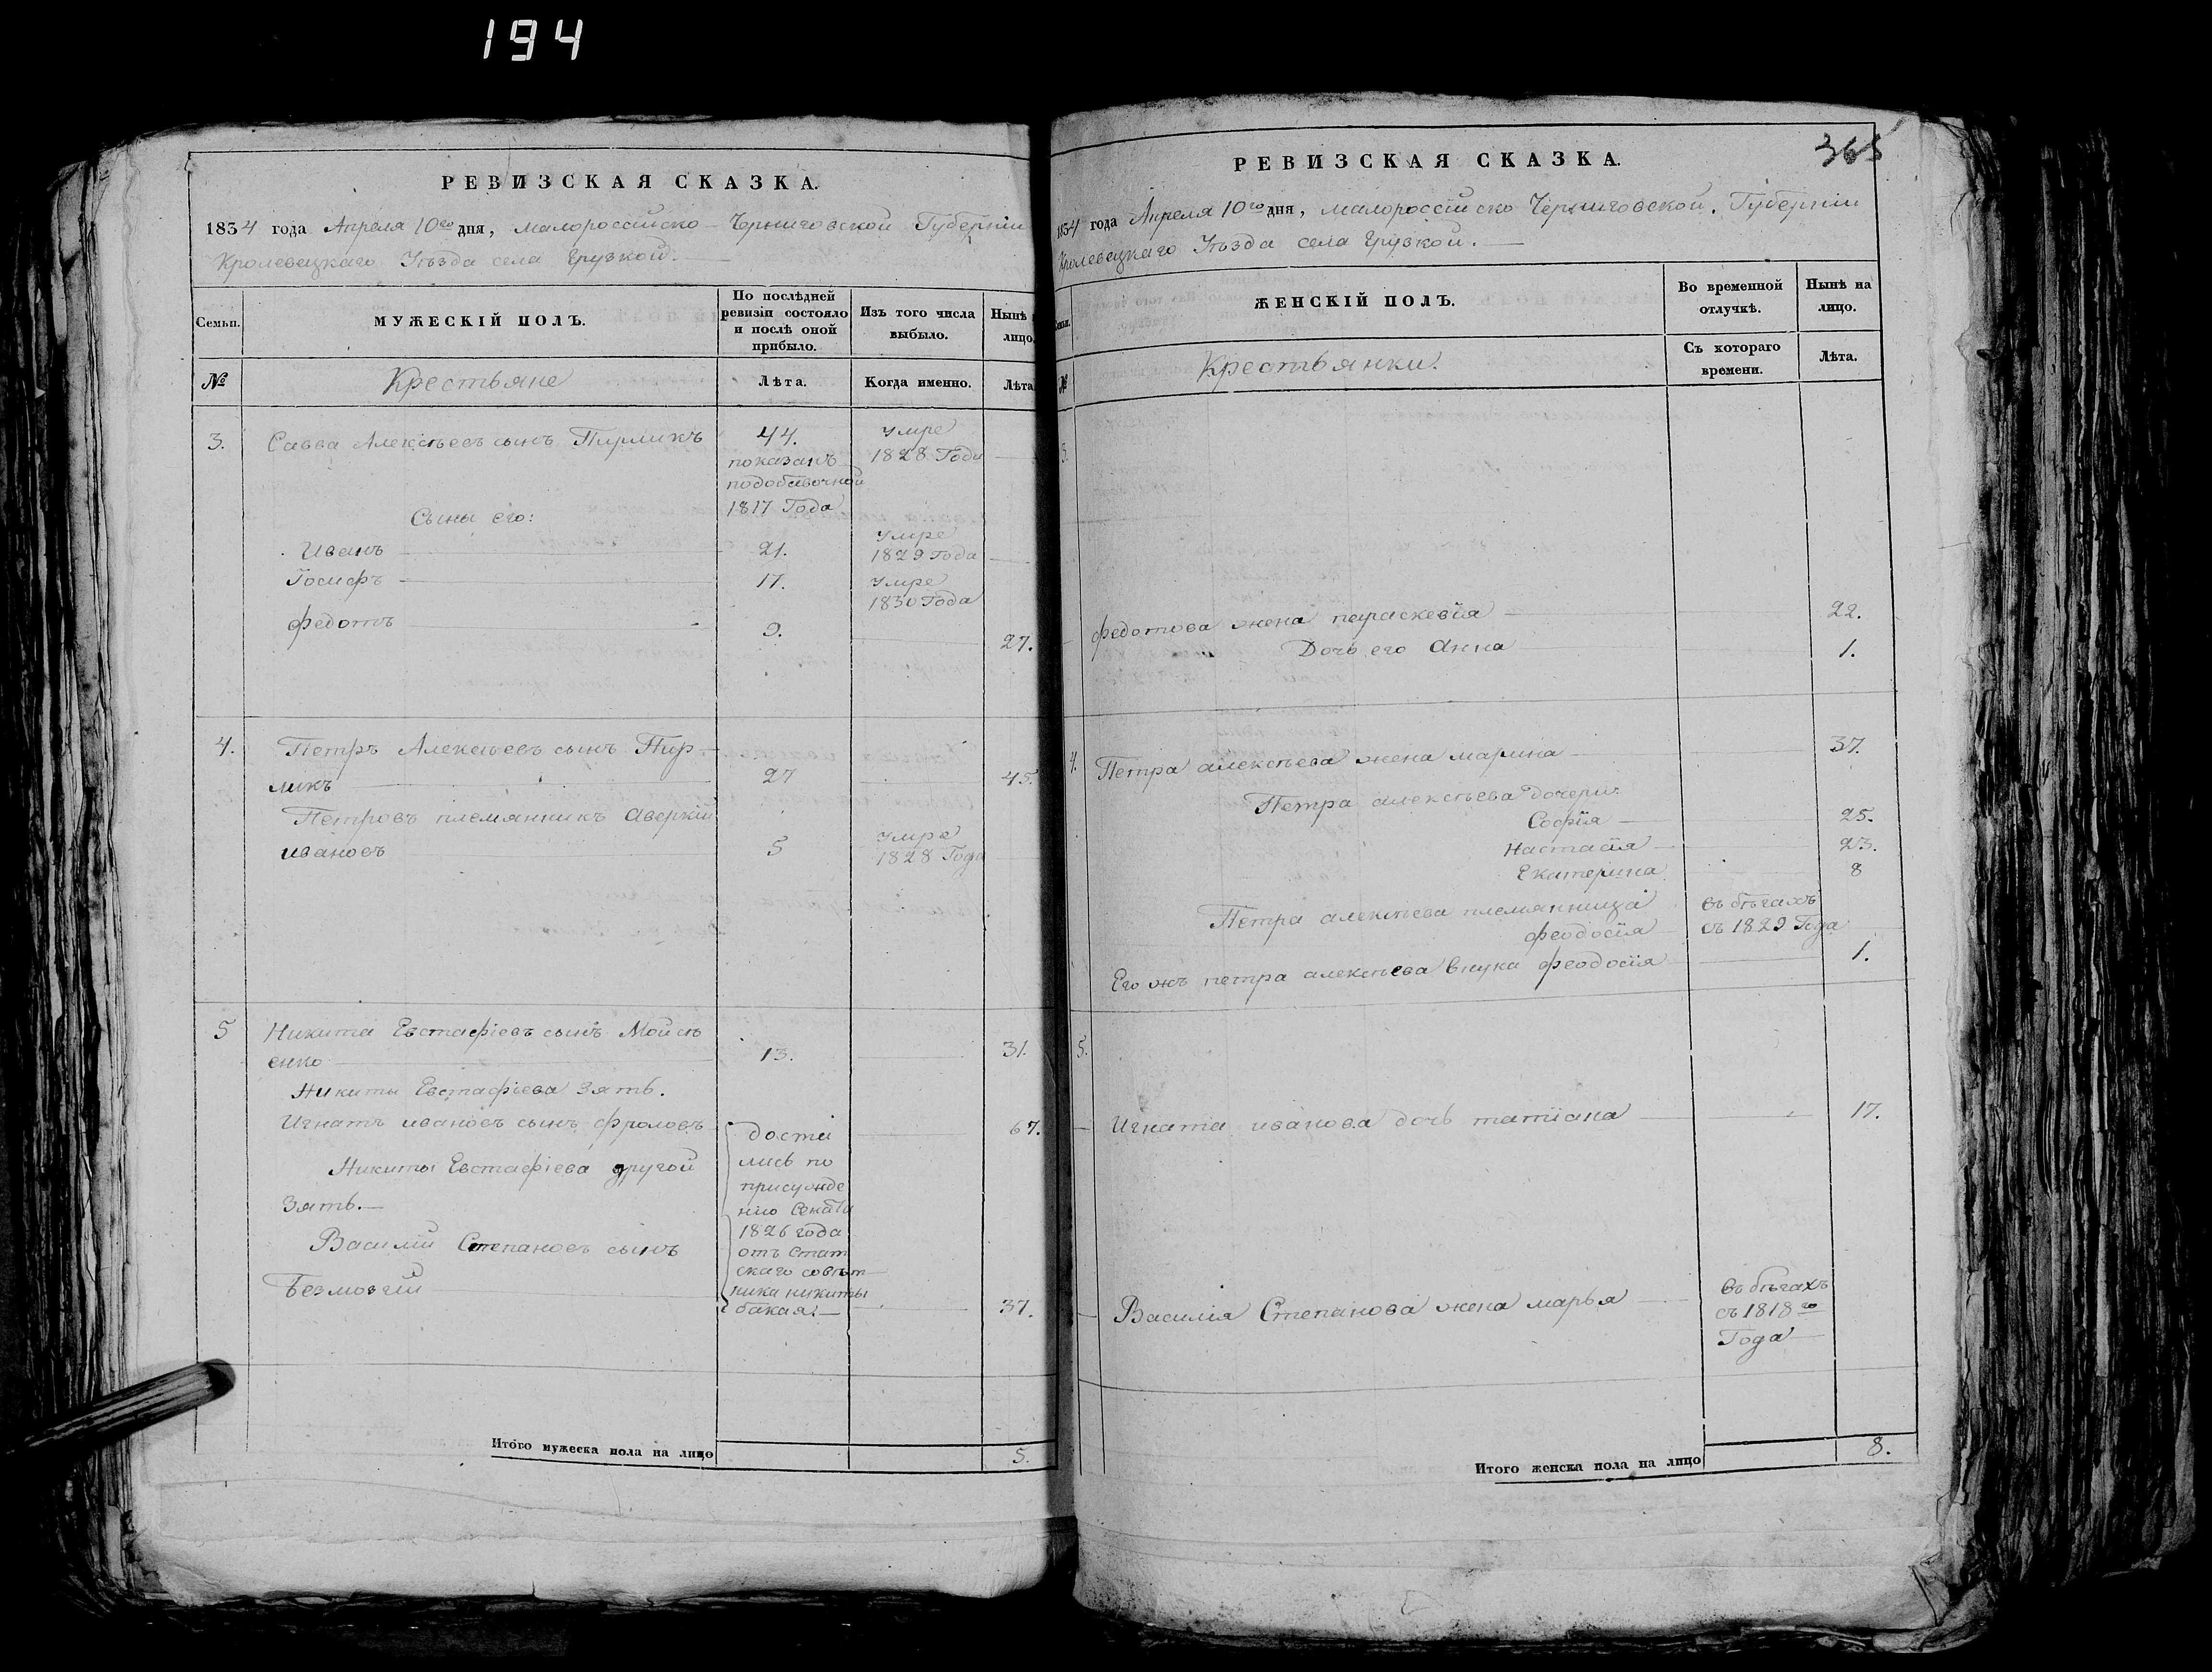 194
РЕВИЗСКАЯ СКАЗКА.
1834 года Апреля 10го дня, малороссійско-Черниговской Губерніи
Кролевецкаго Уѣзда села Грузкой.
Семьи.
МУЖЕСКІЙ ПОЛЪ.
По послѣдней
ревизіи состояло
и послѣ оной
прибыло.
Изъ того числа
выбыло.
Нынѣ
лицо.
№
Крестьяне
Лѣта.
Когда именно.
Лѣта
3. Савва Алексѣевъ сынъ Пирликъ 44. умре
показанъ 1828 Года
подобавочной
1817 Года
Сыны его:
умре
Иванъ 21. 1829 Года
Іосифъ 17. умре
1830 Года
федотъ 9. 27.
4. Петръ Алексѣевъ сынъ Пир
ликъ 27 45.
Петровъ племянникъ аверкій
умре
ивановъ 5 1828 Года
5 Никита Евстафіевъ сынъ Мойсѣ
енко 13. 31.
Никиты Евстафіева зять.
Игнатъ ивановъ сынъ фроловъ 67.
Никиты Евстафіева другой
зять.
Василій Степановъ сынъ
Безмозгій 37.
доста
лись по
присужде
нію Сената
1826 года
отъ стат
скаго совѣт
ника никиты
бакая.
Итого мужеска пола на лицо 5.
365
РЕВИЗСКАЯ СКАЗКА.
1834 года Апреля 10го дня, малороссійско Черниговской. Губерніи
Кролевецкаго Уѣзда села Грузкой.
ЖЕНСКІЙ ПОЛЪ.
Во временной
отлучкѣ.
Нынѣ на
лицо.
№
Крестьянки.
Съ котораго
времени.
Лѣта.
3.
федотова жена параскевія 22.
Дочь его Анна 1.
4. Петра алексѣева жена марина 37.
Петра алексѣева дочери:
Софія 25.
Настасія 23.
Екатерина 8
Петра алексѣева племянница въ бѣгахъ
феодосія съ 1829 Года
Его жъ петра алексѣева внука феодосія 1.
5.
Игната иванова дочь татіана 17.
въ бѣгахъ
Василія Степанова жена марья съ 1818го
Года
Итого женска пола на лицо 8.